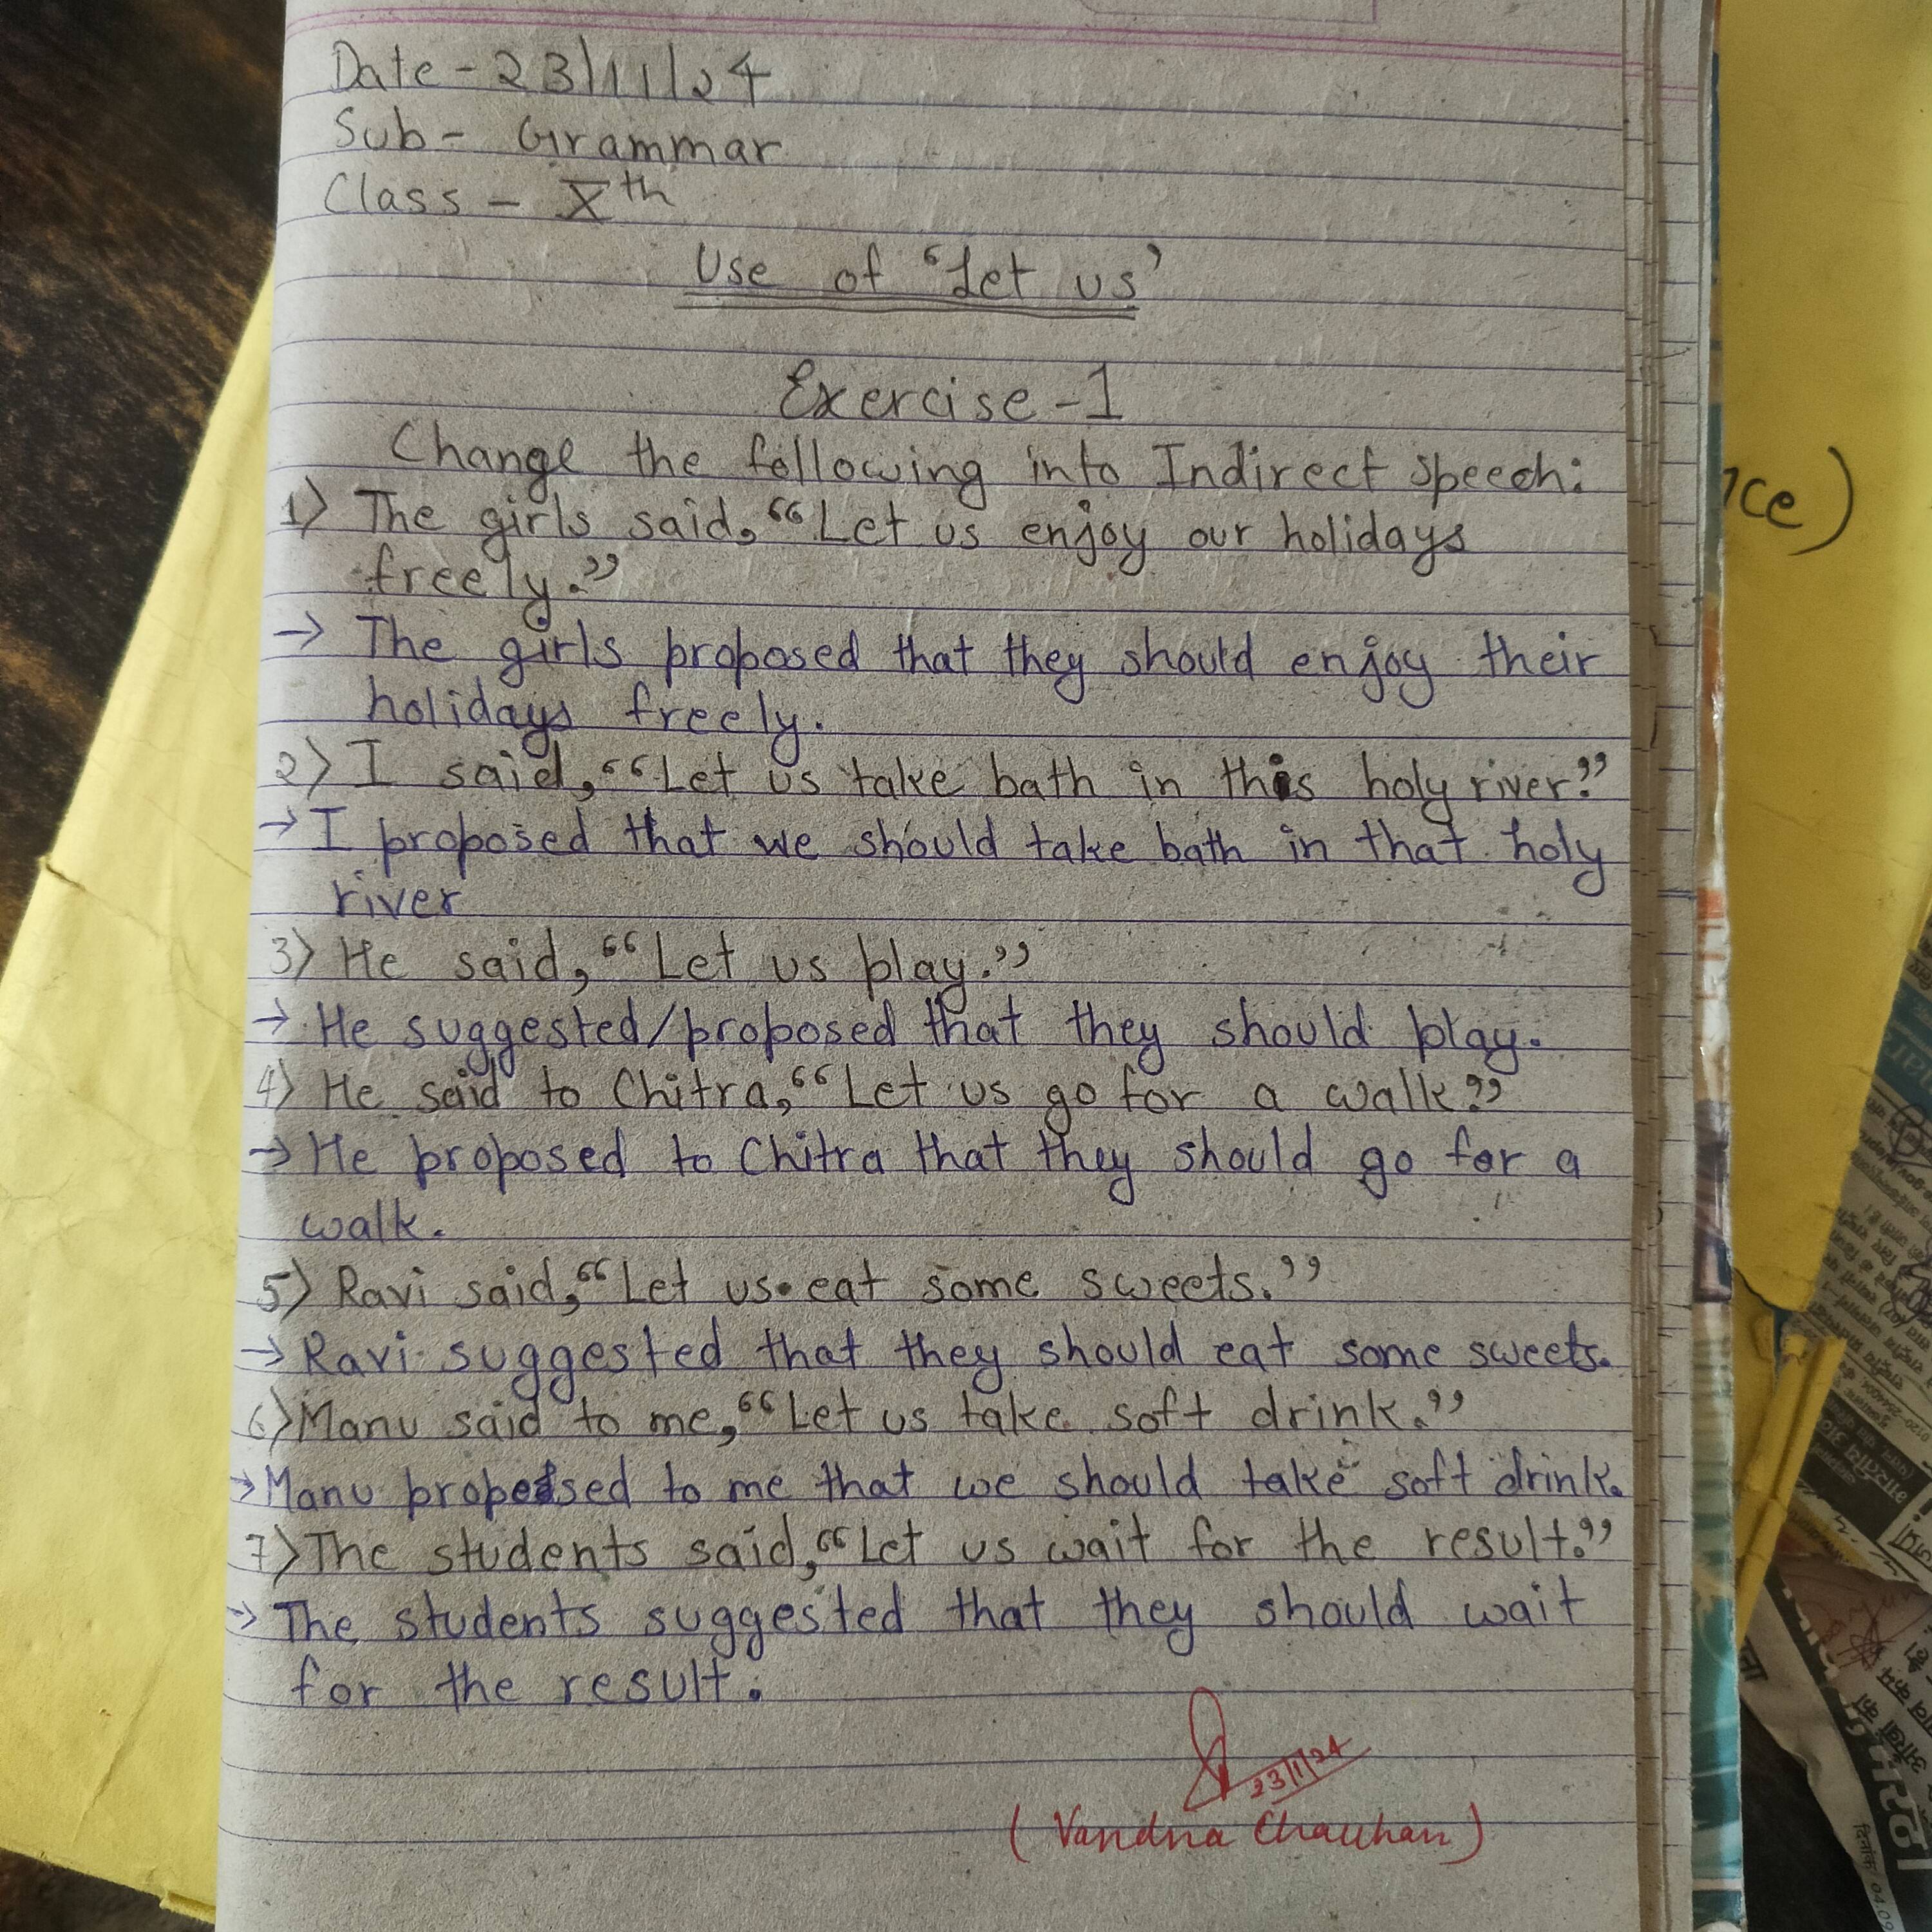 Date - 23/11/24
Sub - Grammar
Class - Xth
Use of 'Let us'
Exercise - 1
Change the following into Indirect Speech:
1) The girls said, "Let us enjoy our holidays
freely."
→ The girls proposed that they should enjoy their
holidays freely.
2) I said, "Let us take bath in this holy river."
→ I proposed that we should take bath in that holy
river
3) He said, "Let us play."
→ He suggested/proposed that they should play.
4) He said to Chitra, "Let us go for a walk."
→ He proposed to Chitra that they should go for a
walk.
5) Ravi said, "Let us eat some sweets."
→ Ravi suggested that they should eat some sweets.
6) Manu said to me, "Let us take soft drink."
→ Manu proposed to me that we should take soft drink.
7) The students said, "Let us wait for the result."
→ The students suggested that they should wait
for the result.
23/11/24
(Vandna Chauhan)
nce)